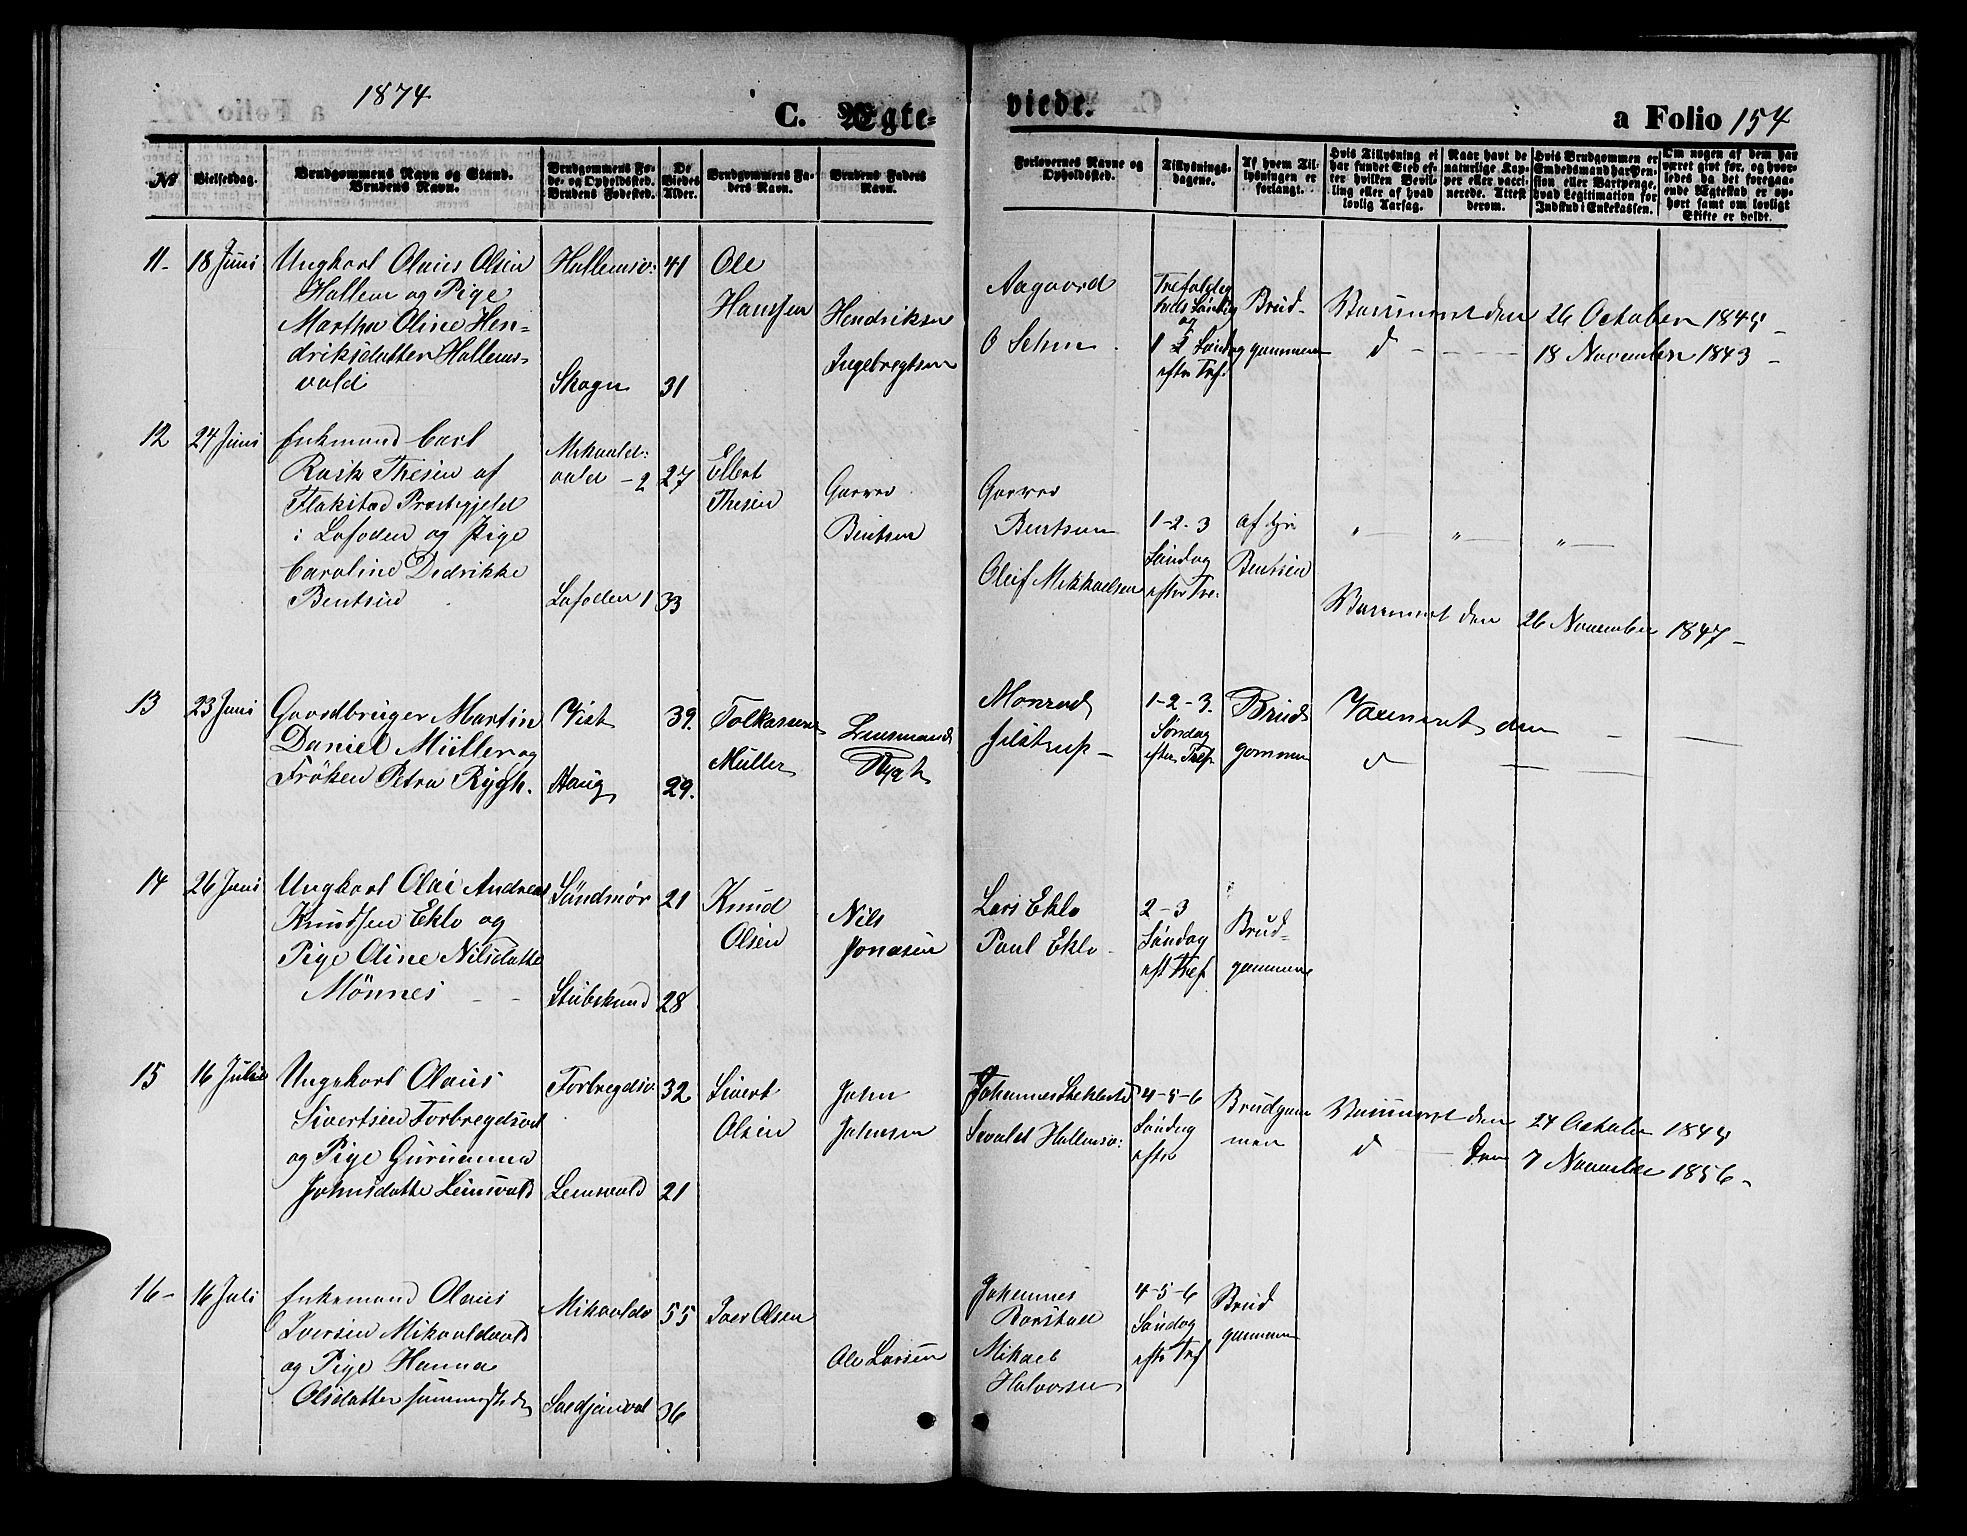 1874
C. Ægte-
viede.
a Folio 154
№
Vielsesdag.
Brudgommens Navn og Stand.
Brudens Navn.
Brudgommens Fø-
de- og Opholdssted.
Brudens Fødested.
De
Viedes
Alder.
Brudgommens Fa-
ders Navn.
Brudens Faders
Navn.
Forlovernes Navne og
Opholdssted.
Tillysnings-
dagene.
Af hvem Til-
lysningen er
forlangt.
Hvis Tillysning ei
har fundet Sted ef-
ter hvilken Bevil-
ling eller af hvad
lovlig Aarsag.
Naar havt de
naturlige Kop-
per eller vacci-
nerede. Attest
derom.
Hvis Brudgommen er
Embedsmand har Pen-
sion eller Vartpenge,
hvad Legitimation for
Indskud i Enkekassen.
Om nogen af dem har
været gift før, og hvor-
ledes da det foregaa-
ende Ægteskab er op-
hørt samt om lovligt
Skifte er holdt.
11-
18 Juni
Ungkarl Olaus Olsen
Hallem og Pige
Martha Oline Hen-
driksdatter Hallems-
vald
Hallemsv:
Skogn
41
31
Ole
Hanssen
Hendriksen
Ingebregtsen
Aagaard
O Sehm
Trefoldig
heds Søndag
og
1 S Søndag
efter Tref.
Brud-
gommen
Vaccineret den 26 October 1844 -
d - - - - 18 November 1843 -
12
24 Juni
Enkemand Carl
Rasch Thesen af
Flakstad Præstegjeld
i Lofoden og Pige
Caroline Dedrikke
Bentsen
Mikvold:
vald - 2
Lofoden 1
27
33
Ellert
Thesen
Bentsen
Bentsen
Oluf Mikkaelsen
1-2-3
Søndag
efter Tre:
af hr
Bentsen
" - " - " -
Vaccineret den 26 November 1847 -
13
23 Juni
Gaardbruger Martin
Daniel Müller og
Frøken Petra Rygh.
Vist
Haug
39.
29.
Müller
Lensmand
Rygh
Monrad
Jelstrup -
1-2-3.
Søndag
efter Tref.
Brud
gommen
Vaccineret den - -
d - -
14
26 Juni
Ungkarl Olai Andreas
Knudsen Eklo og
Pige Oline Nilsdatte
Mønnes - -
Søndmør
Stubskind
21
28
Knud
Olsen
Nils
Jonasen
Lars Eklo
Paul Eklo -
2-3
Søndag
eft Tref
Brud-
gommen
15
16 Juli
Ungkarl Olaus
Sivertsen Torbregdsvd
og Pige Gurianna
Johnsdatte Leinsvald
Torbregdsv
Leinsvald
32
21
Sivert
Olsen
John
Johnsen
Sevald Hallemsv:
4-5-6
Søndag
efter
Brudgom
men
Vaccineret den 24 October 1844
d - Den 7 November 1856 -
16-
16 Juli
Enkemand Olaus
Iversen Mikvoldvald
og Pige Hanna
Olsdatter sammesteds
Mikvoldv
55
36
Iver Olsen
Ole Larsen
Johannes
Borstad
Mikael
Halvorsen
4-5-6
Søndag
efter Tref
Brud
gommen